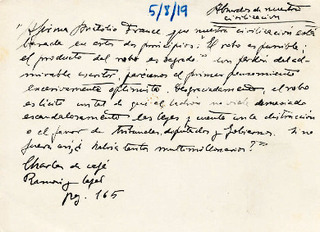 5/8/19
Absurdos de nuestra
civilización
"Afirma Anatolio France que nuestra civilización está
basada en estos dos principios: "El robo es punible;
el producto del robo es sagrado". Con perdón del ad-
mirable escritor, parécenos el primer pensamiento
excesivamente optimista. Desgraciadamente, el robo
es lícito con tal de que el ladrón no viole demasiado
escandalosamente las leyes y cuente con la distracción
o el favor de tribunales, diputados y gobiernos. Si no
fuera así ¿habría tantos multimillonarios?"
Charlas de café
Ramón y Cajal
pag. 165